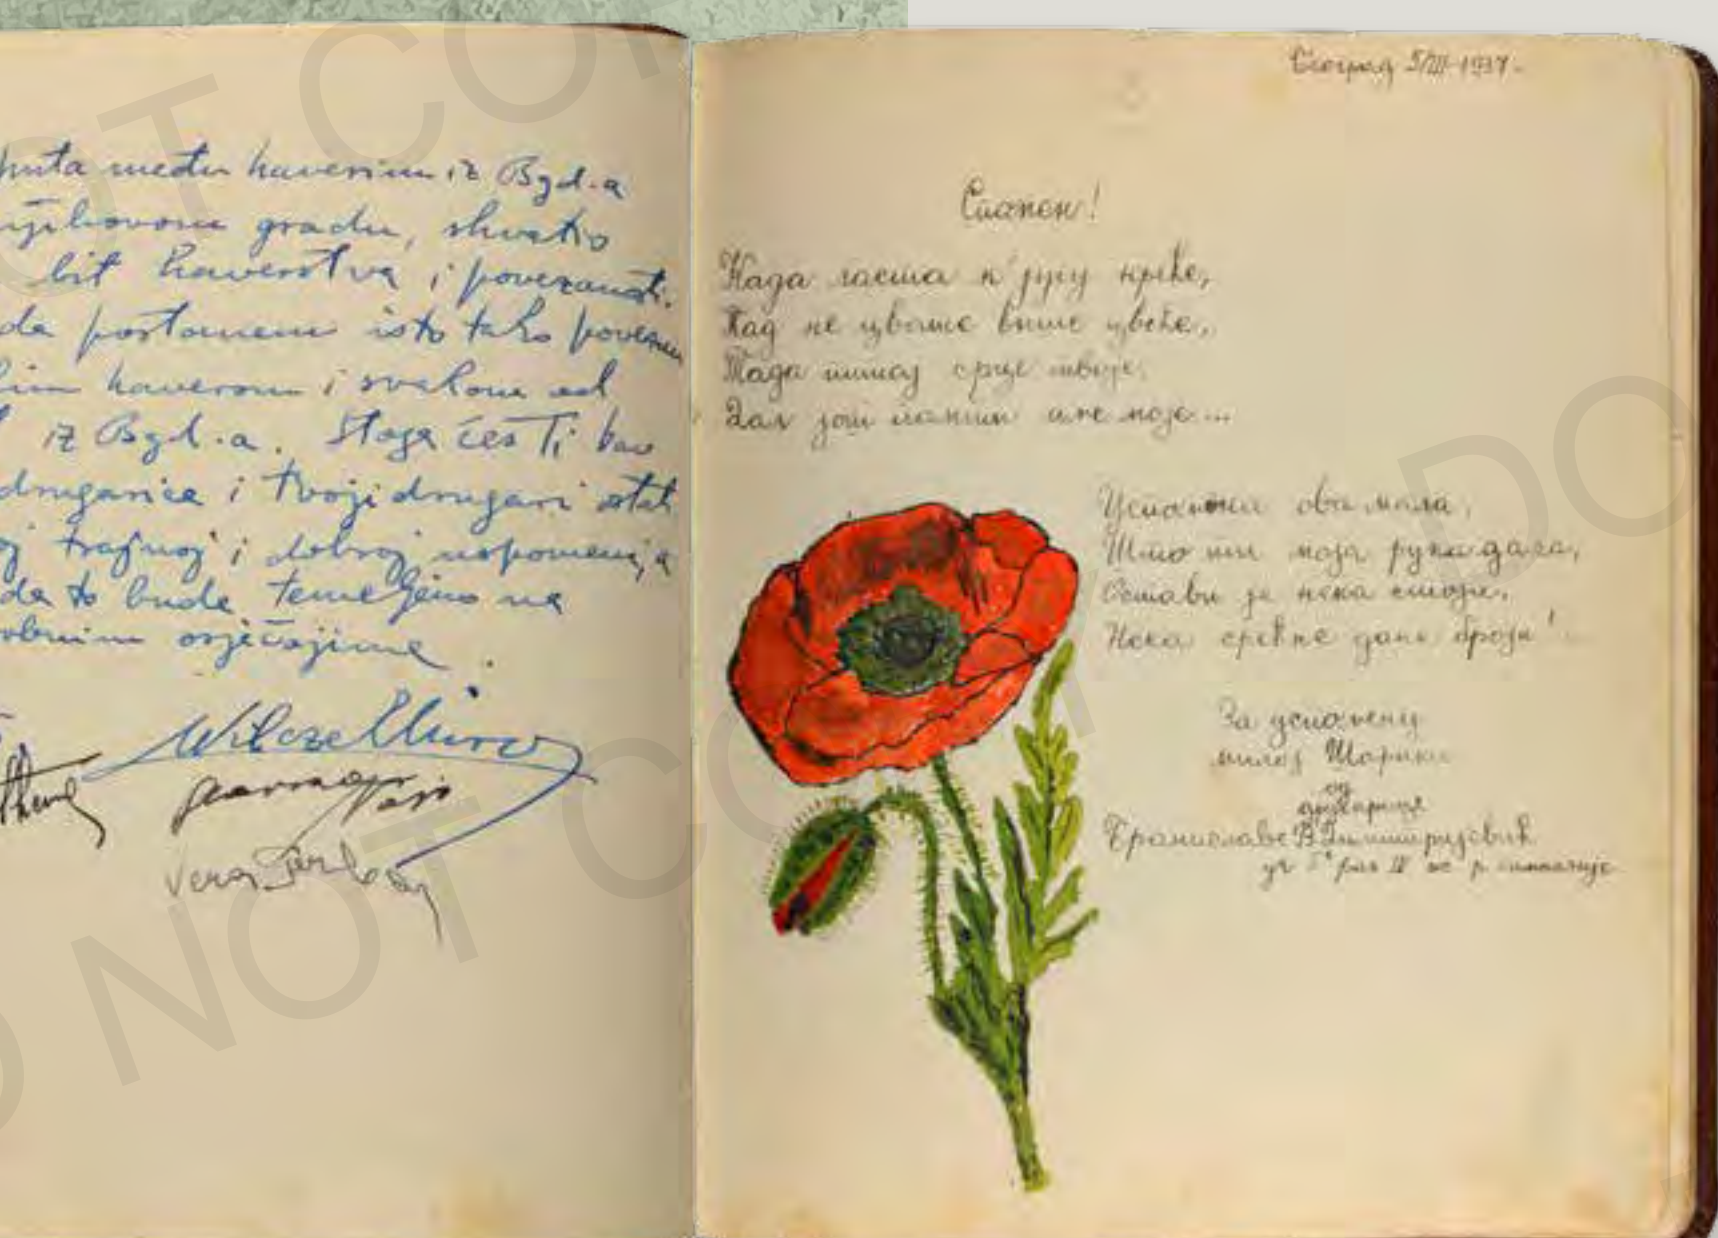 puta među haverima iz Bgd.a
gradu, shvatio
bit haverstva i povezanosti.
da postanem isto tako povezan
haverom i svakome od
iz Bgd.a. Stoga ćeš Ti kao
drugarica i tvoji drugari ostati
trajnoj i dobroj uspomeni, a
da to bude temeljeno na
osjećajima.
Vera
Београд 5/III-1937.
Спомен!
Када ласта к'југу креће,
Кад не цвате више цвеће,
Тада питај срце твоје,
Дал још памти име моје...
Успомена ова мала,
Што ти моја рука дала,
Остави је нека стоји,
Нека срећне дане броји!
За успомену
милој Шарики
од
другарице
Браниславе В Димитријевић
уч раз IV ж р гимназије
DO NOT COPY